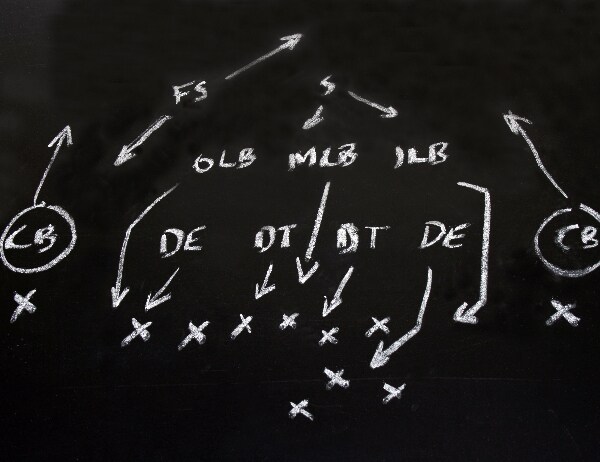 FS S
OLB MLB ILB
CB DE DT DT DE CB
X X X X X X X X
X X
X